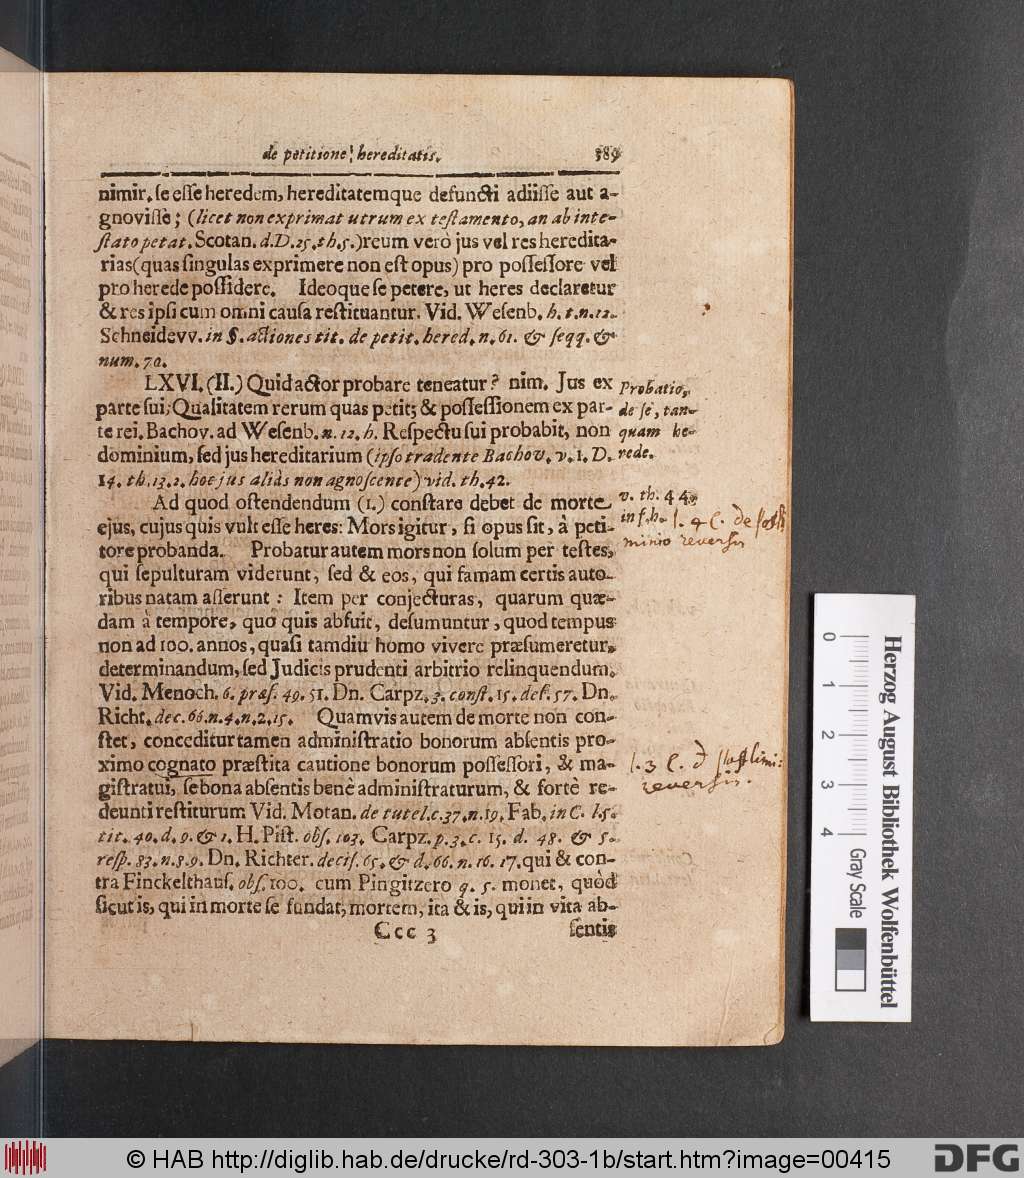 de petitione hereditatis. 389
nimir. se esse heredem, hereditatemque defuncti adiisse aut a-
gnovisse; (licet non exprimat utrum ex testamento, an ab inte-
stato petat. Scotan. d. D. 25. th. 5.) reum verò jus vel res heredita-
rias (quas singulas exprimere non est opus) pro possessore vel
pro herede possidere. Ideoque se petere, ut heres declaretur
& res ipsi cum omni causa restituantur. Vid. Wesenb. h. t. n. 12.
Schneidevv. in §. actiones tit. de petit. hered. n. 61. & seqq. &
num. 70.
LXVI. (II.) Quid actor probare teneatur? nim. Jus ex
parte sui; Qualitatem rerum quas petit; & possessionem ex par-
te rei. Bachov. ad Wesenb. n. 12. h. Respectu sui probabit, non
dominium, sed jus hereditarium (ipso tradente Bachov. v. 1. D.
14. th. 13. 2. hoc jus aliàs non agnoscente) vid. th. 42.
Probatio,
de se, tan-
quam he-
rede.
Ad quod ostendendum (1.) constare debet de morte
ejus, cujus quis vult esse heres: Mors igitur, si opus sit, à peti-
tore probanda. Probatur autem mors non solum per testes,
qui sepulturam viderunt, sed & eos, qui famam certis auto-
ribus natam asserunt: Item per conjecturas, quarum quæ-
dam à tempore, quo quis abfuit, desumuntur, quod tempus
non ad 100. annos, quasi tamdiu homo vivere præsumeretur,
determinandum, sed Judicis prudenti arbitrio relinquendum.
Vid. Menoch. 6. præs. 49. 51. Dn. Carpz. 3. const. 15. def. 57. Dn.
Richt. dec. 66. n. 4. n. 2. 15. Quamvis autem de morte non con-
stet, conceditur tamen administratio bonorum absentis pro-
ximo cognato præstita cautione bonorum possessori, & ma-
gistratui, se bona absentis benè administraturum, & fortè re-
deunti restiturum Vid. Motan. de tutel. c. 37. n. 19. Fab. in C. l. 5.
tit. 40. d. 9. & 1. H. Pist. obs. 103. Carpz. p. 3. c. 15. d. 48. & 5.
resp. 83. n. 8. 9. Dn. Richter. decis. 65. & d. 66. n. 16. 17. qui & con-
tra Finckelthaus. obs. 100. cum Pingitzero q. 5. monet, quòd
sicut is, qui in morte se fundat, mortem, ita & is, qui in vita ab-
Ccc 3 sentis
v. th. 44.
in f. h. l. 4 C. de postli
minio reversis
l. 3 C. d postlimi:
reversis.
0 1 2 3 4
Gray Scale
Herzog August Bibliothek Wolfenbüttel
© HAB http://diglib.hab.de/drucke/rd-303-1b/start.htm?image=00415
DFG